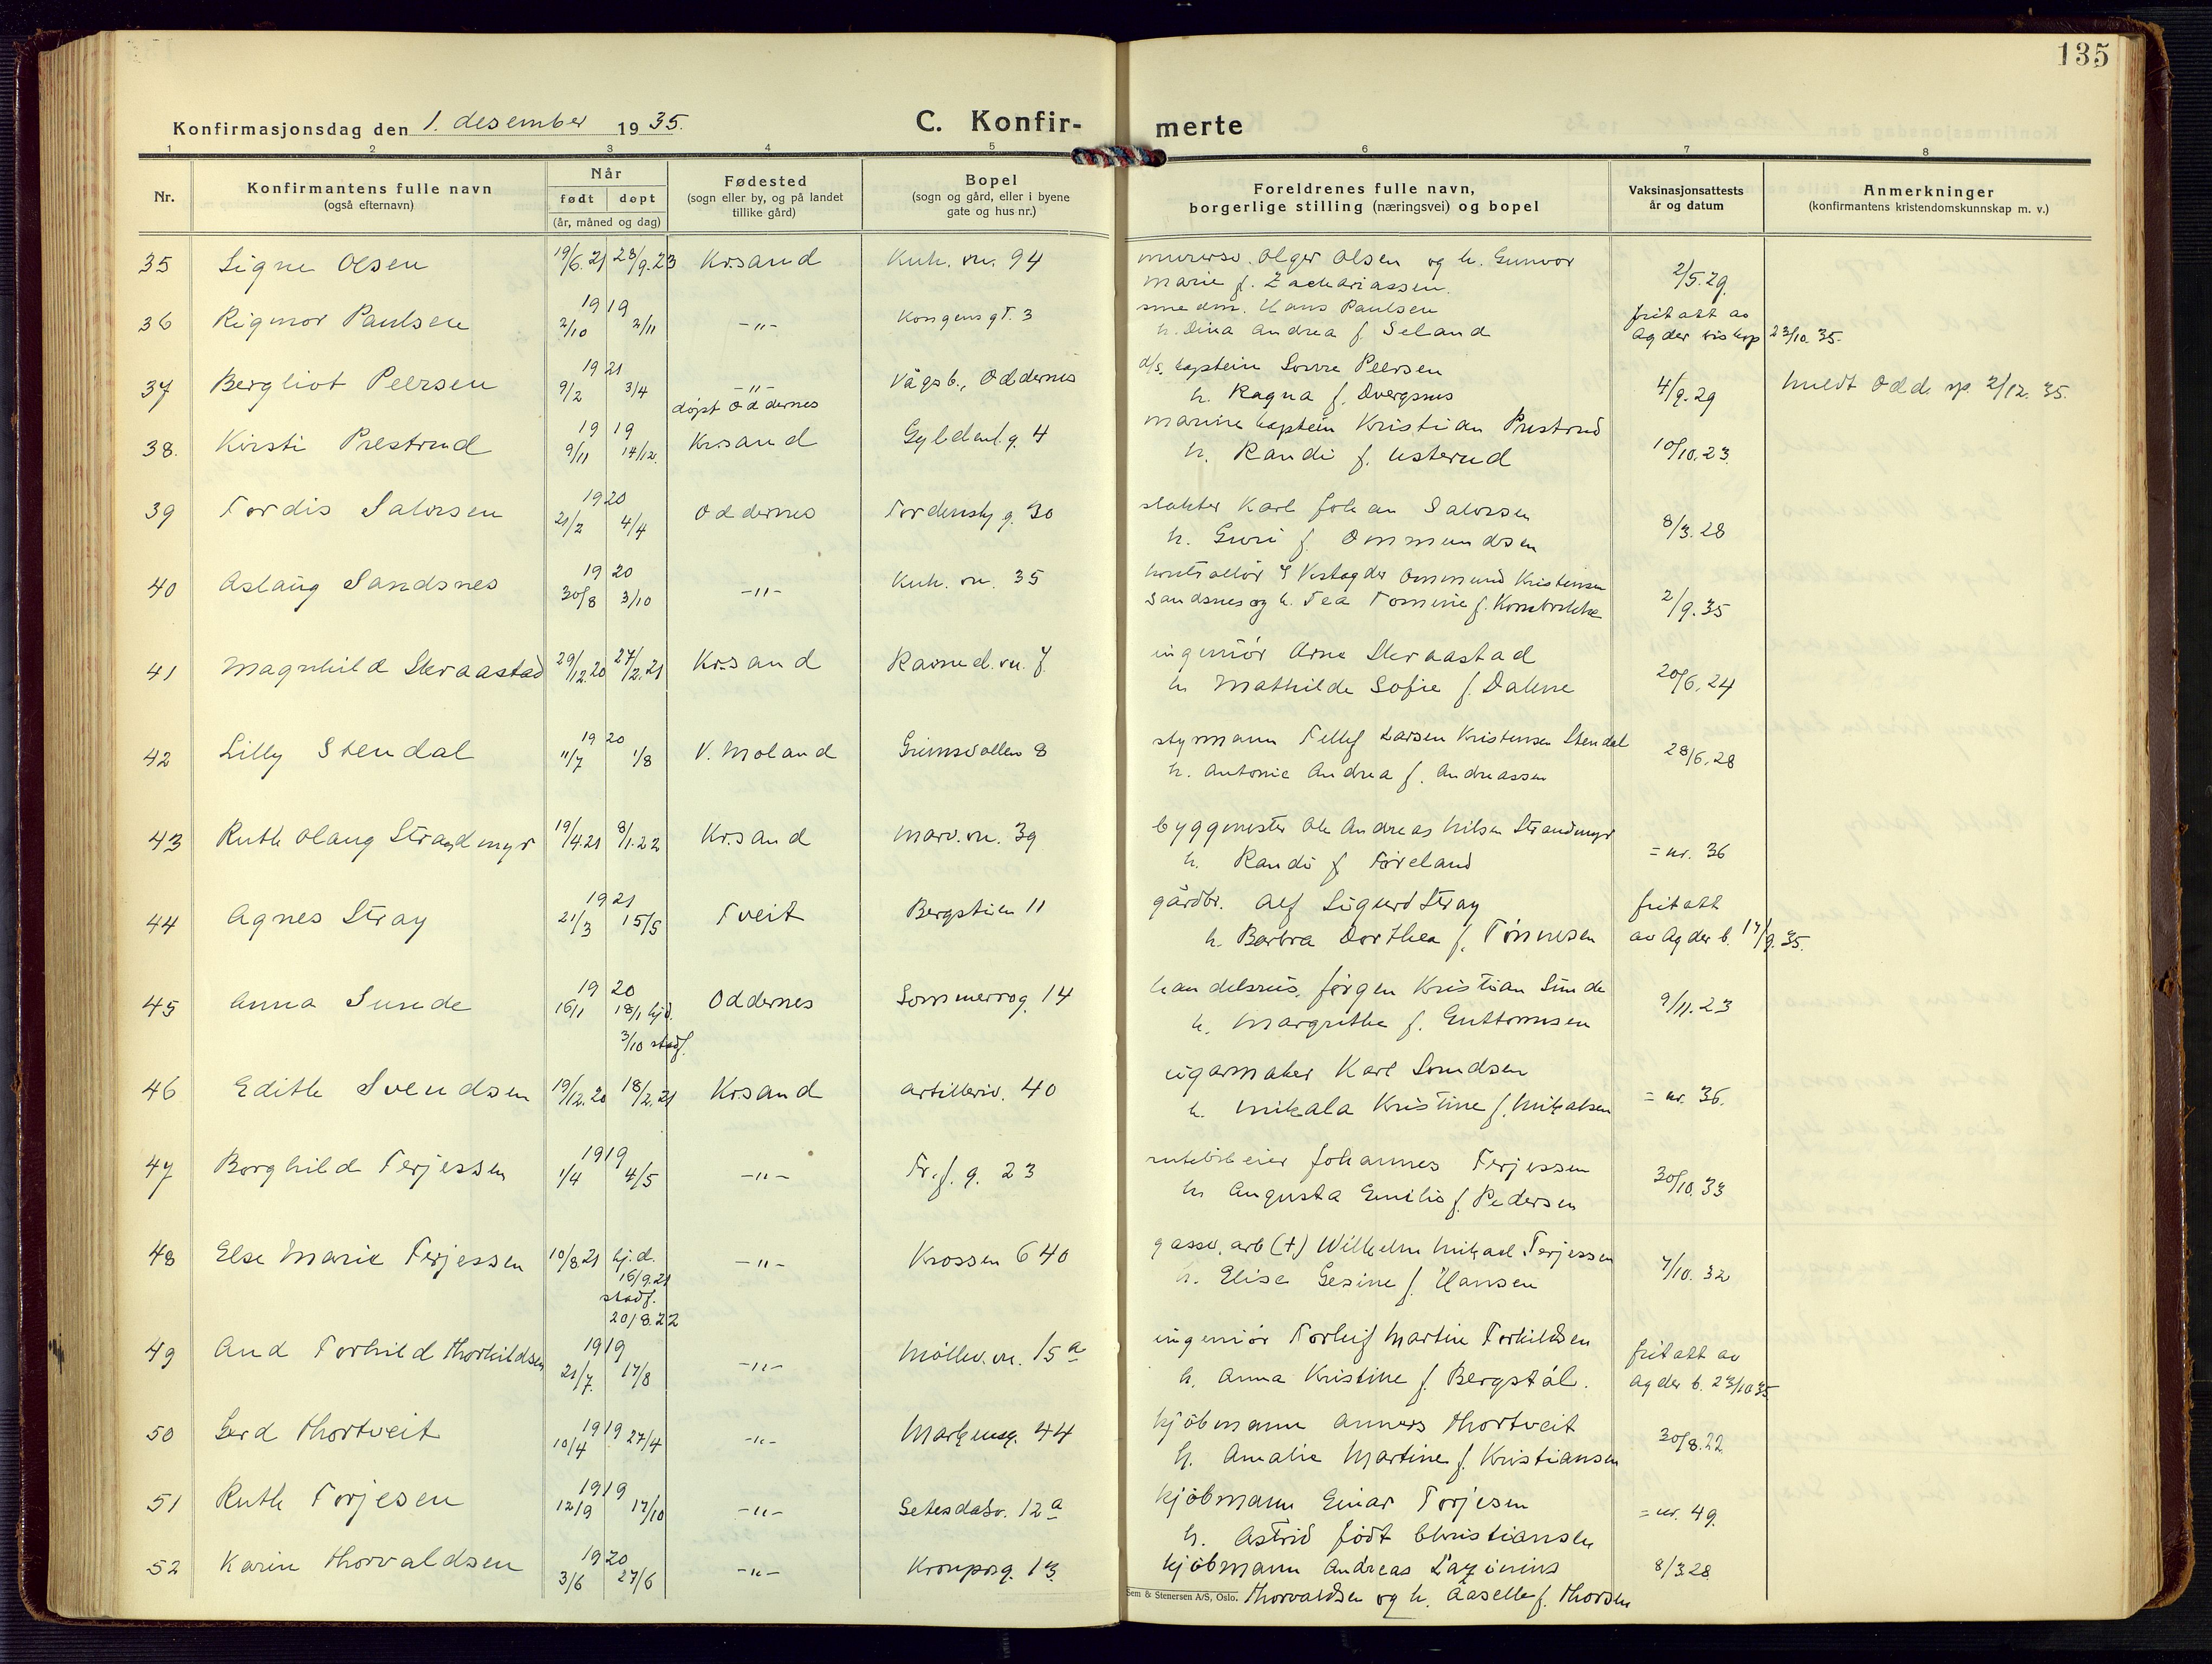 135
Konfirmasjonsdag den 1. desember 1935.
C. Konfir-
merte
1 2 3 4 5 6 7 8
Nr.
Konfirmantens fulle navn
(også efternavn)
Når
født døpt
(år, måned og dag)
Fødested
(sogn eller by, og på landet
tillike gård)
Bopel
(sogn og gård, eller i byene
gate og hus nr.)
Foreldrenes fulle navn,
borgerlige stilling (næringsvei) og bopel
Vaksinasjonsattests
år og datum
Anmerkninger
(konfirmantens kristendomskunnskap m. v.)
35 Signe Olsen 19/6.21 23/9.23 Kr.sand Kuh. vn. 94 murersv. Olger Olsen og h. Gunvor
Marie f. Zachariassen. 2/5.29
36 Rigmor Paulsen 1919 2/10 2/11 -"- Kongensgt. 3 smedm. Hans Paulsen
h. Dina Andrea f. Seland fritatt av
Agder biskop 23/10.35.
37 Bergliot Peersen 1921 9/2 3/4 -"- Vågsb., Oddernes d/s. kaptein Sverre Peersen
døpt Oddernes h. Ragna f. Dvergsnes 4/9.29 meldt Odd. sp. 2/12.35.
38. Kirsti Prestrud 1919 9/11 14/12. Kr.sand Gyldenl.g. 4 marinekaptein Kristian Prestrud
h. Randi f. Usterud 10/10.23.
39 Tordis Salvesen 1920 21/2 4/4 Oddernes Tordensk. g. 30 slakter Karl Johan Salvesen
h. Guri f. Ommundsen 8/3.28
40 Aslaug Sandsnes 1920 30/8 3/10 -"- Kuh. vn. 35 kontrollør i Vestagder Ommund Kristensen
Sandsnes og h. Tea Tomine f. 2/9.35
41 Magnhild Skraastad 29/12.20 27/2.21 Kr.sand Ravned.vn. 7 ingeniør Arne Skraastad
h. Mathilde Sofie f. Dalene 20/6.24
42 Lilly Stendal 1920 11/7 1/8 V. Moland Grimsvollen 8 styrmann Tellef Larsen Kristensen Stendal
h. Antonie Andrea f. Andreassen 28/6.28
43 Ruth Olaug Strandmyr 19/4.21 8/1.22 Kr.sand Marv.vn. 39 byggmester Ole Andreas Nilsen Strandmyr
h. Randi f. Føreland = nr. 36
44 Agnes Stray 1921 21/3 15/5 Tveit Bergstien 11 gårdbr. Alf Sigurd Stray
h. Barbra Dorthea f. Tønnesen fritatt
av Agder b. 17/9.35.
45 Anna Sunde 1920 16/1 18/1 hjd. Oddernes Sommerrog. 14 handelsreis. Jørgen Kristian Sunde
3/10 stadf. h. Margrethe f. Guttormsen 9/11.23
46 Edith Svendsen 19/12.20 18/2.21 Kr.sand Artilleriv. 40 sigarmaker Karl Svendsen
h. Mikala Kristine f. Mikalsen = nr. 36.
47 Borghild Terjessen 1919 1/4 4/5 -"- Fr.f.g. 23 rutebileier Johannes Terjessen
h. Augusta Emilie f. Pedersen 30/10.33
48 Else Marie Terjessen 10/8.21 hj.d. 16/9.21 -"- Krossen 640 gassv. arb (†) Wilhelm Mikael Terjessen
stadf. 20/8.22 h. Elise Gesine f. Hansen 7/10.32
49 Aud Torhild Thorkildsen 1919 21/7. 17/8 -"- Møllev.vn. 15a ingeniør Torleif Martin Torkildsen
h. Anna Kristine f. Bergstøl. fritatt av
Agder b. 23/10 35
50 Gerd Thortveit 1919 10/4 27/4 -"- Markensg. 44 kjøbmann Anners Thortveit
h. Amalie Martine f. Kristiansen 30/8.22.
51 Ruth Torjesen 1919 12/9 17/10 -"- Setesdalsv. 12a kjøbmann Einar Torjesen
h. Astrid født Christiansen = nr. 49.
52 Karin Thorvaldsen 1920 3/6 27/6 -"- Kronprg. 13. kjøbmann Andreas
Thorvaldsen og h. Aaselle f. Thorsen 8/3 28
Sem & Stenersen A/S, Oslo.